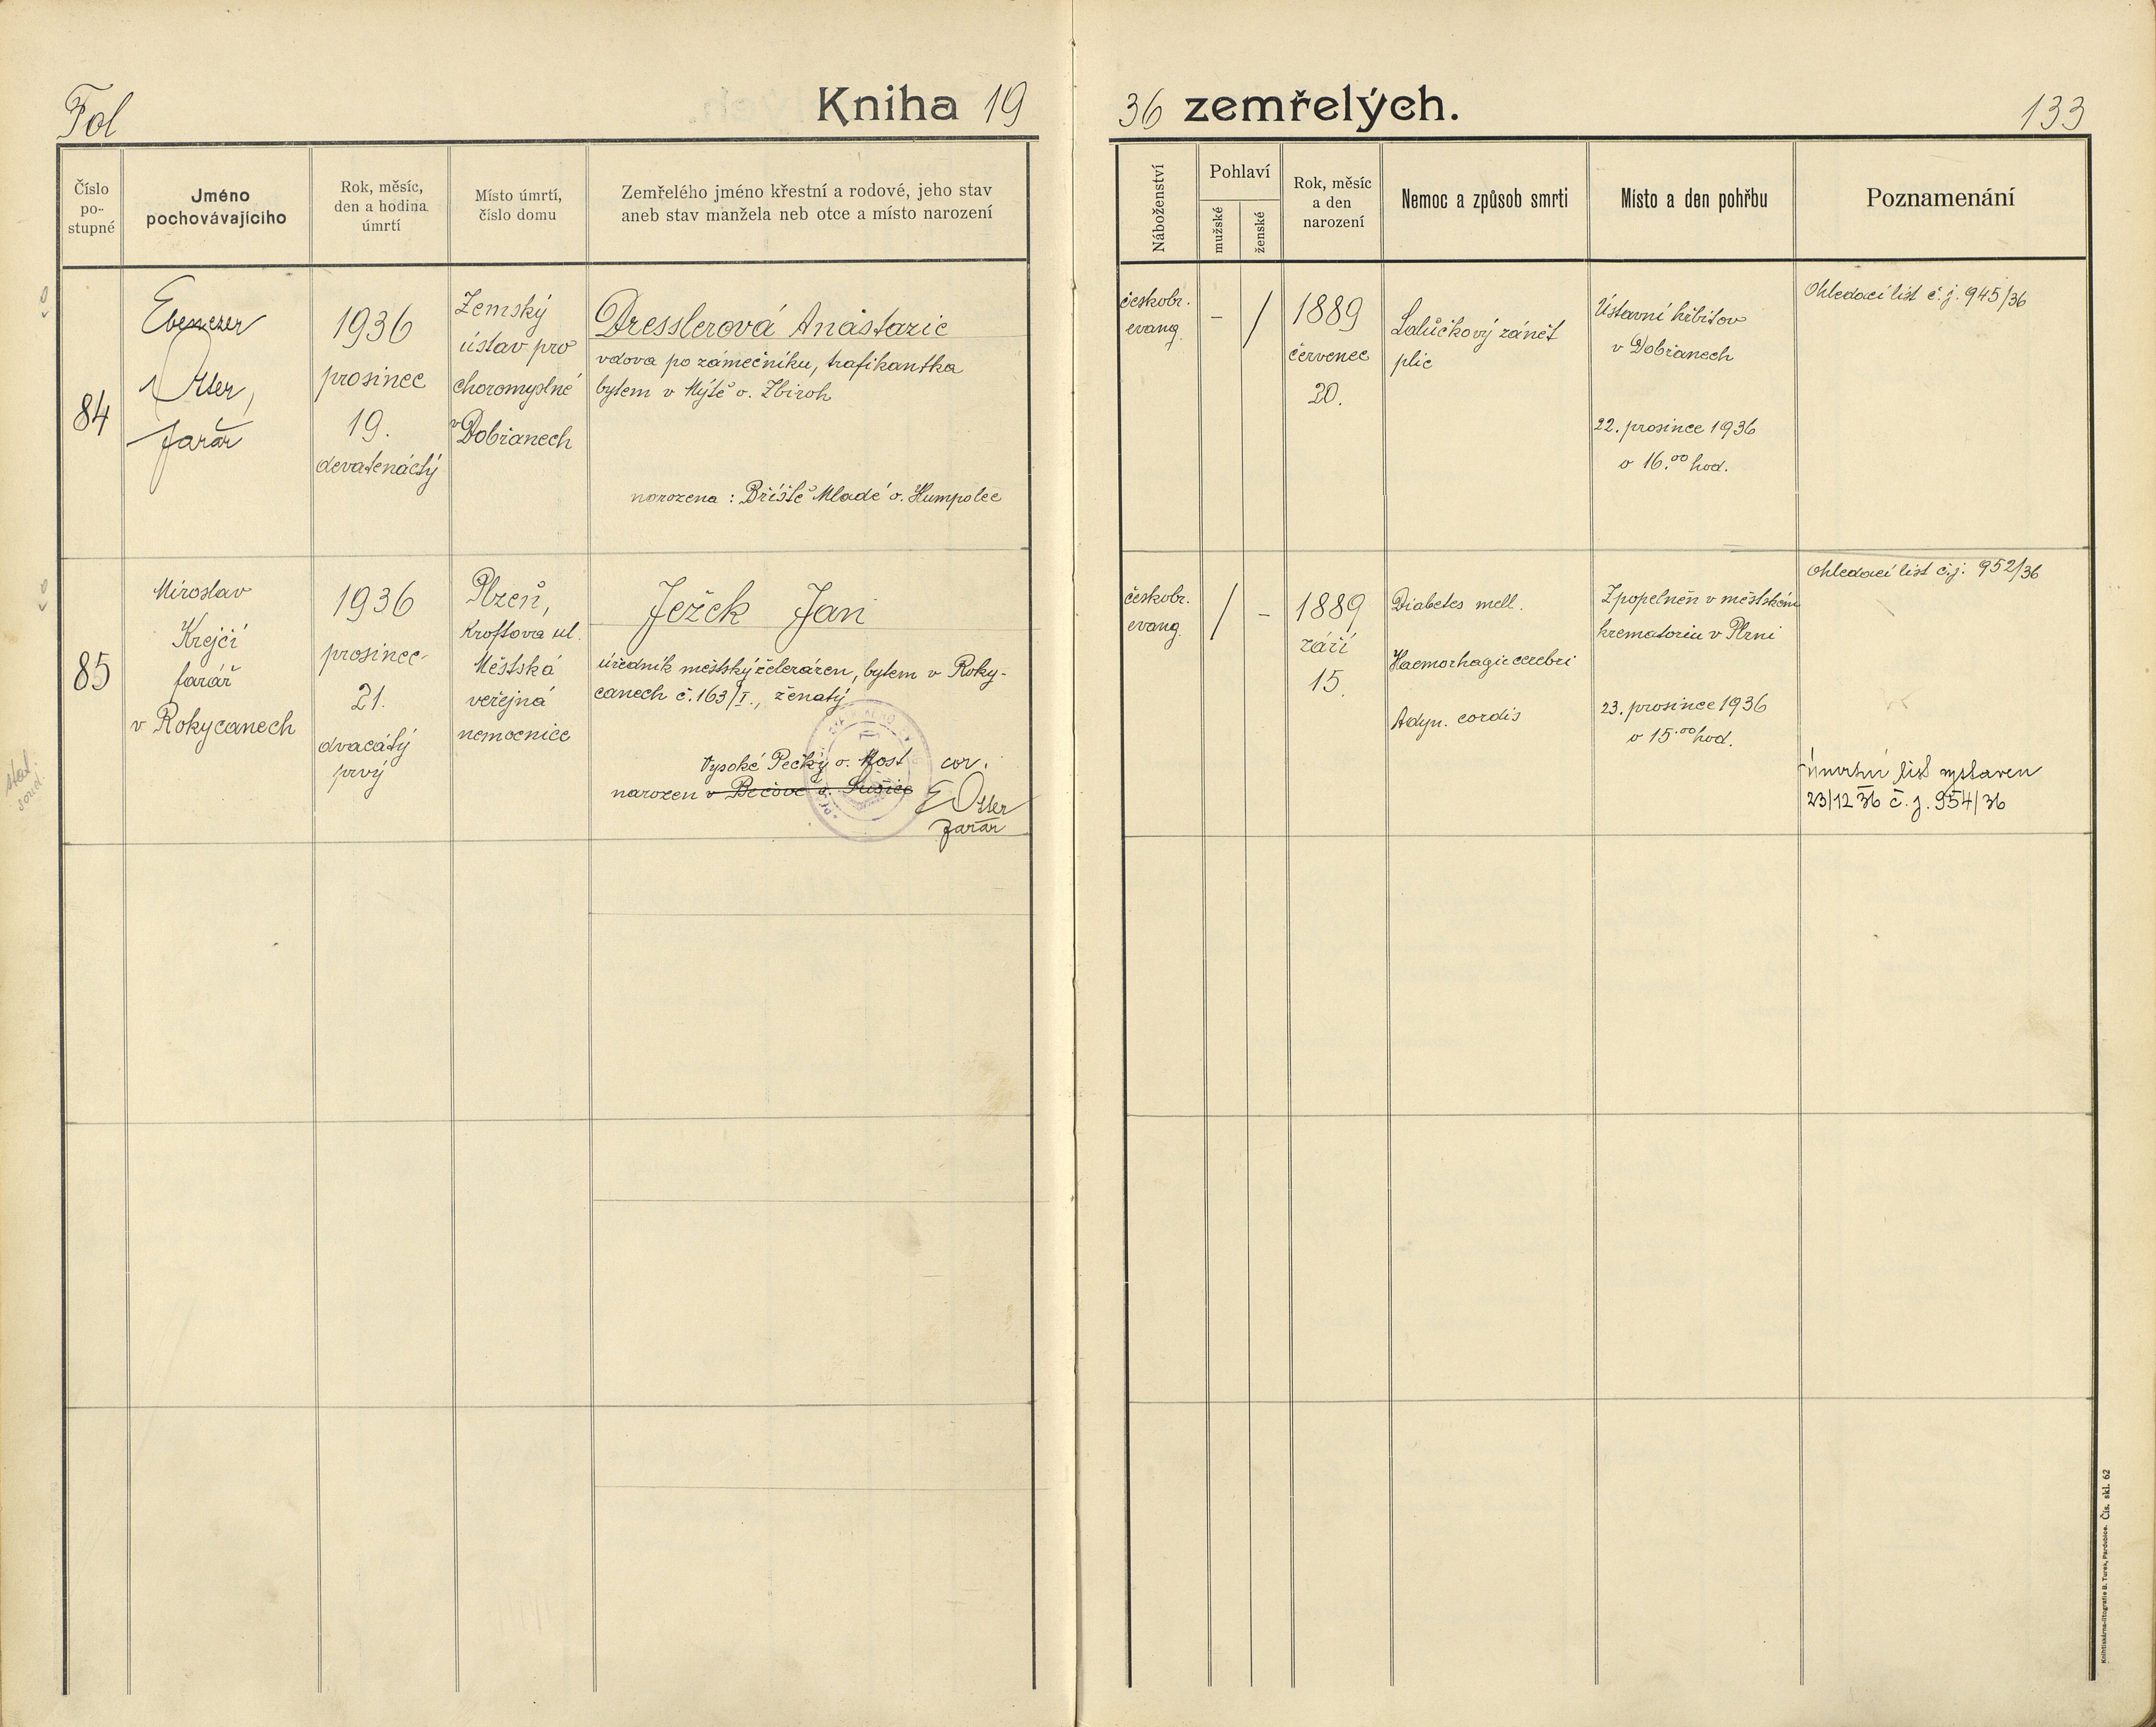 Fol
Kniha 1936 zemřelých.
133
Číslo po-stupné
Jméno pochovávajícího
Rok, měsíc, den a hodina úmrtí
Místo úmrtí, číslo domu
Zemřelého jméno křestní a rodové, jeho stav
aneb stav manžela neb otce a místo narození
Náboženství
Pohlaví
mužské
ženské
Rok, měsíc a den narození
Nemoc a způsob smrti
Místo a den pohřbu
Poznamenání
84
Ebenezer
Otter,
farář
1936
prosinec
19.
devatenáctý
Zemský
ústav pro
choromyslné
v Dobřanech
Dresslerová Anastazie
vdova po zámečníku, trafikantka
bytem v Mýtě o. Zbiroh
narozena : Bříště Mladé o. Humpolec
českobr.
evang.
–
/
1889
červenec
20.
Lalůčkový zánět
plic
Ústavní hřbitov
v Dobřanech
22. prosince 1936
o 16.00 hod.
Ohledací list č. j. 945/36
85
Miroslav
Krejčí
farář
v Rokycanech
1936
prosinec
21.
dvacátý
prvý
Plzeň,
Kroftova ul.
Městská
veřejná
nemocnice
Ježek Jan
úředník městských železáren, bytem v Roky-
canech č. 163/I., ženatý
Vysoké Pečky o. Most cor.
narozen v Bečově o. Sušice E Otter
farář
českobr.
evang.
/
–
1889
září
15.
Diabetes mell.
Haemorhagie cerebri
Adyn. cordis
Zpopelněn v městském
krematoriu v Plzni
23. prosince 1936
o 15.00 hod.
Ohledací list č.j. 952/36
Úmrtní list vystaven
23/12 36 č. j. 954/36
Knihtiskárna-litografie B. Turek, Pardubice. Čís. skl. 62